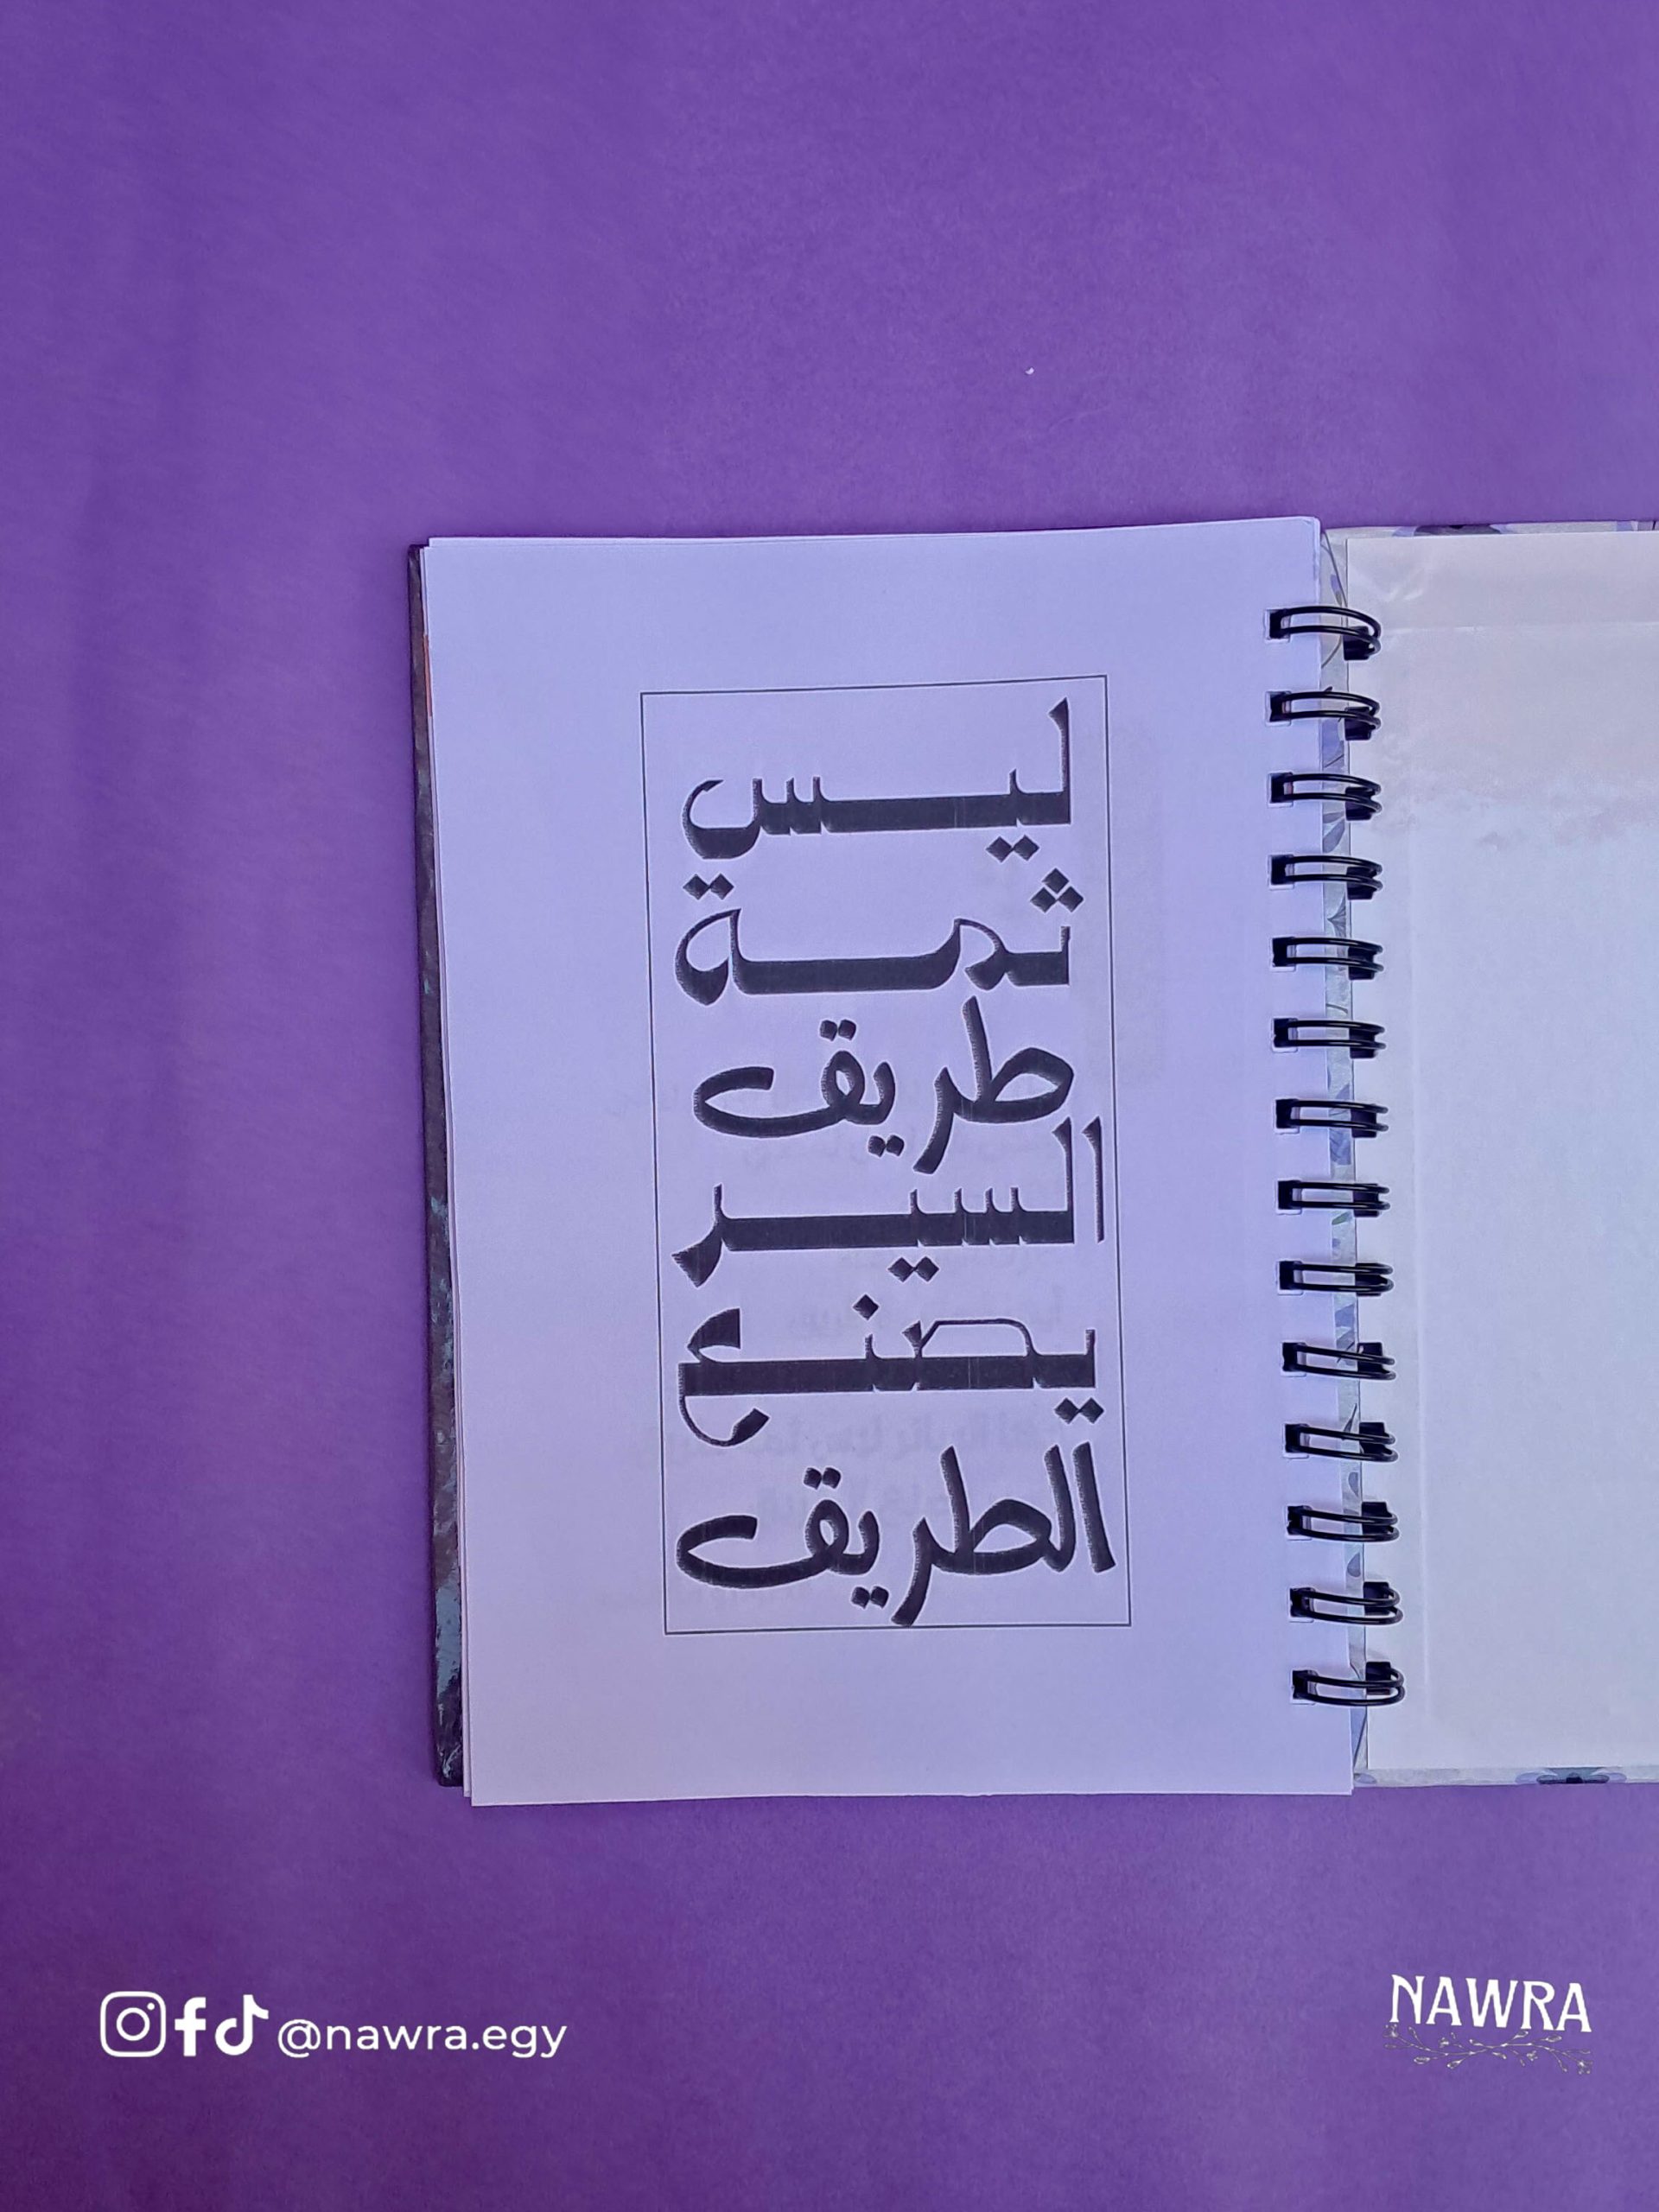 ليس
ثمة
طريق
السير
يصنع
الطريق
@nawra.egy
NAWRA